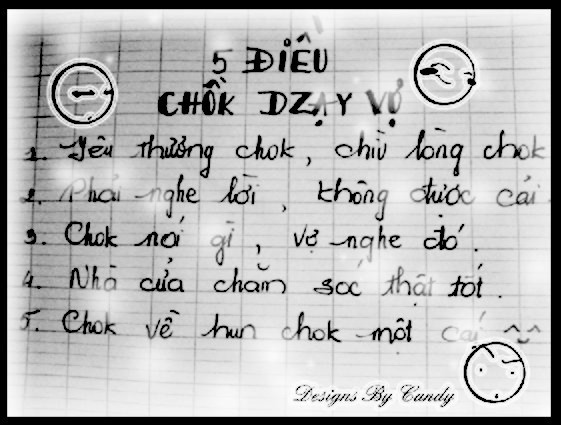 5 ĐIỀU
CHỒK DZẠY VỢ
1. Yêu thương chok, chiù lòng chok
2. Phải nghe lời, không được cải.
3. Chok nói gì, vợ nghe đó.
4. Nhà cửa chăm soć thật tốt.
5. Chok về hun chok một cái ^_^
Designs By Candy